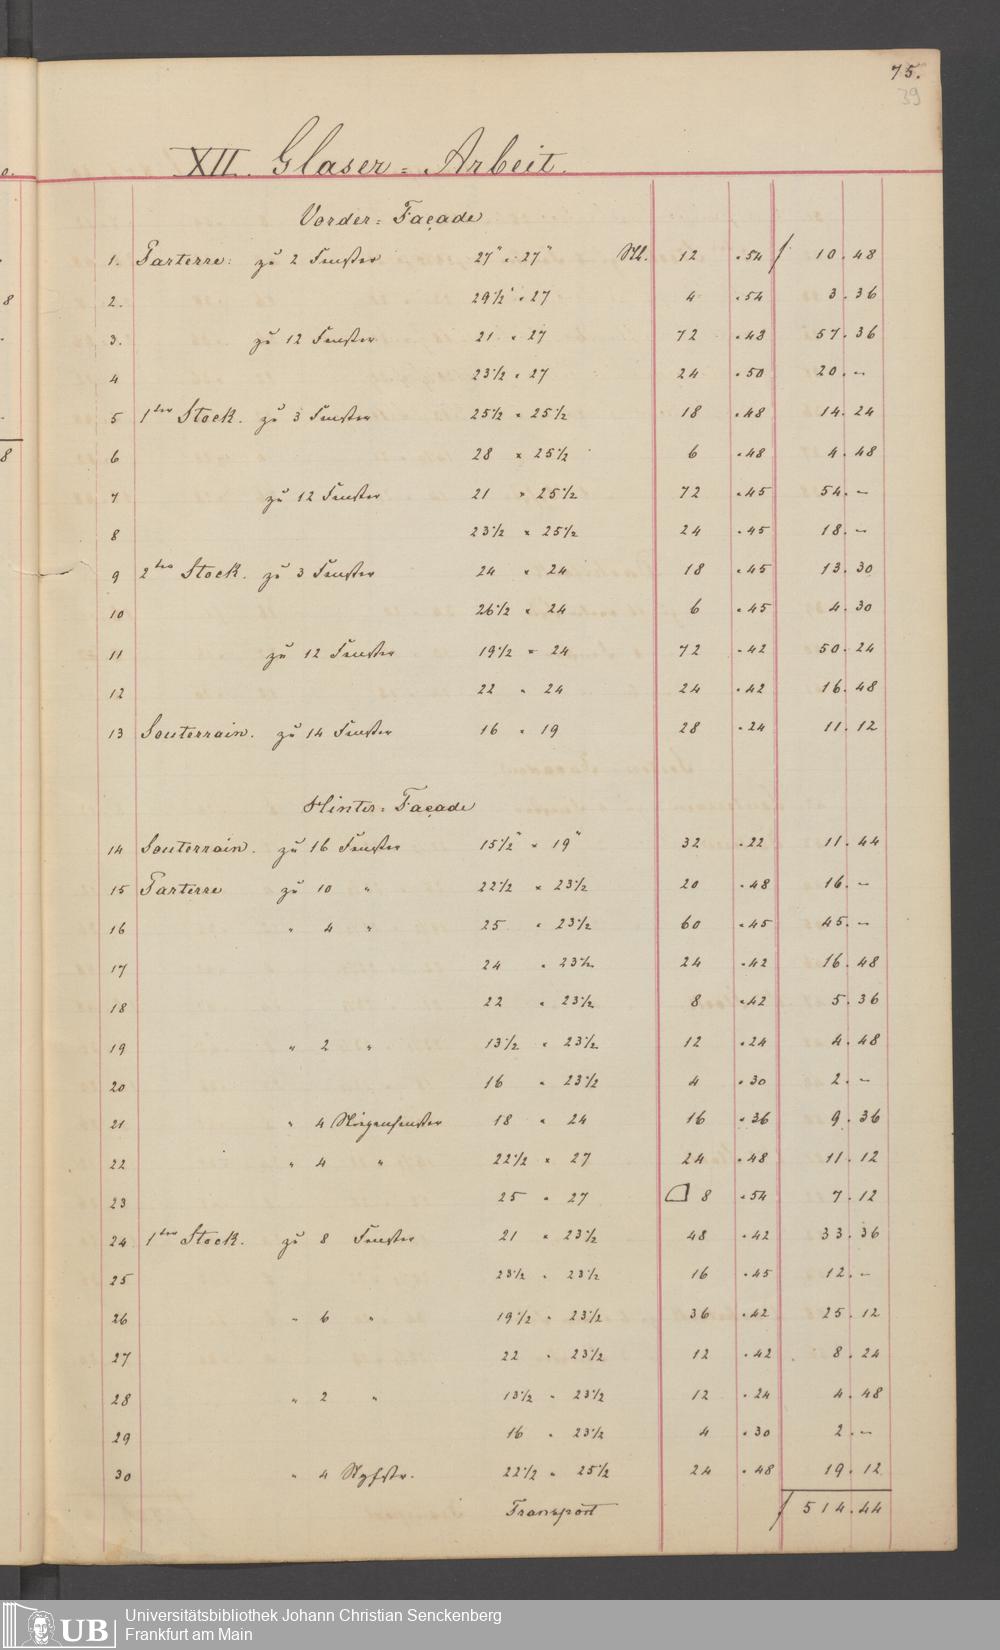 75.
39
XII. Glaser=Arbeit.
Vorder=Façade
1. Parterre: zu 2 Fenster 27" × 27" Stk. 12 " 54 f 10. 48
2. 29 1/2 " 27 4 " 54 3. 36
3. zu 12 Fenster 21 " 27 72 " 48 57. 36
4 23 1/2 " 27 24 " 50 20. –
5 1ter Stock. zu 3 Fenster 25 1/2 × 25 1/2 18 " 48 14. 24
6 28 × 25 1/2 6 " 48 4. 48
7 zu 12 Fenster 21 × 25 1/2 72 " 45 54. –
8 23 1/2 × 25 1/2 24 " 45 18. –
9 2ter Stock. zu 3 Fenster 24 × 24 18 " 45 13. 30
10 26 1/2 × 24 6 " 45 4. 30
11 zu 12 Fenster 19 1/2 × 24 72 " 42 50. 24
12 22 " 24 24 " 42 16. 48
13 Souterrain. zu 14 Fenster 16 " 19 28 " 24 11. 12
Hinter=Façade
14 Souterrain. zu 16 Fenster 15 1/2" × 19" 32 " 22 11. 44
15 Parterre zu 10 " 22 1/2 × 23 1/2 20 " 48 16. –
16 " 4 " 25 " 23 1/2 60 " 45 45. –
17 24 " 23 1/2 24 " 42 16. 48
18 22 " 23 1/2 8 " 42 5. 36
19 " 2 " 13 1/2 " 23 1/2 12 " 24 4. 48
20 16 " 23 1/2 4 " 30 2. –
21 " 4 18 " 24 16 " 36 9. 36
22 " 4 " 22 1/2 × 27 24 " 48 11. 12
23 25 " 27 8 " 54 7. 12
24 1ter Stock. zu 8 Fenster 21 × 23 1/2 48 " 42 33. 36
25 23 1/2 " 23 1/2 16 " 45 12. –
26 " 6 " 19 1/2 " 23 1/2 36 " 42 25. 12
27 22 " 23 1/2 12 " 42 8. 24
28 " 2 " 13 1/2 " 23 1/2 12 " 24 4. 48
29 16 " 23 1/2 4 " 30 2. –
30 " 4 22 1/2 " 25 1/2 24 " 48 19. 12
Transport f 514. 44
e.
8
8
UB Universitätsbibliothek Johann Christian Senckenberg
Frankfurt am Main